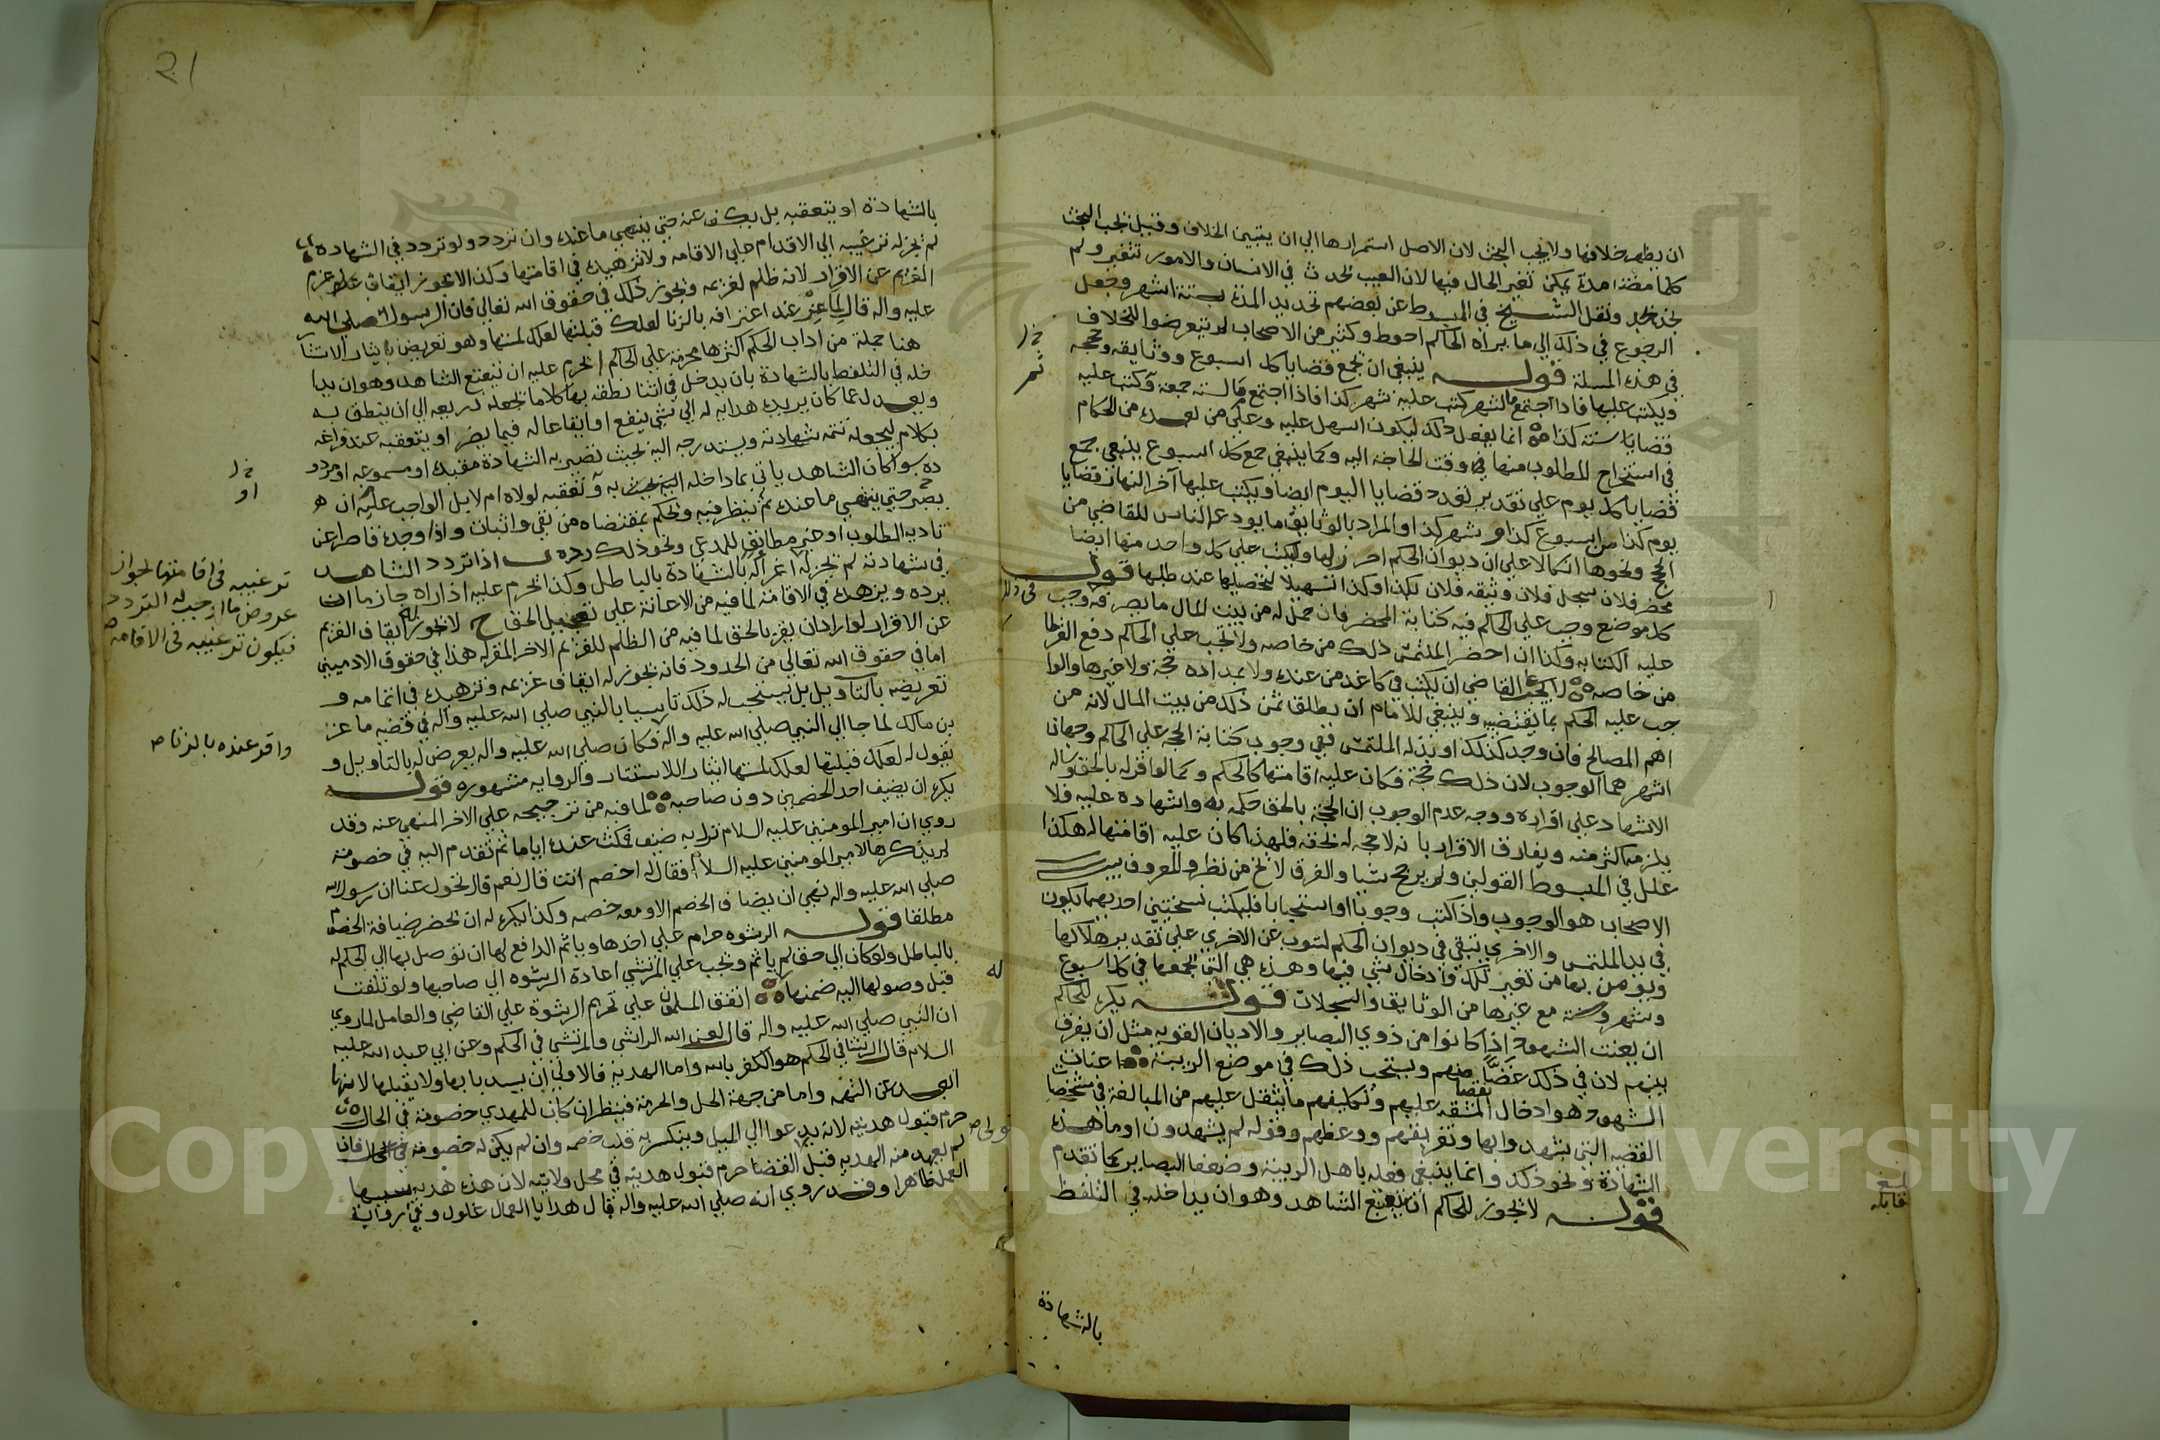 ان يظهر خلافها ولا يجب البحث لان الاصل استمرارها الي ان يتبين الخلاف وقيل يجب البحث
كلما مضت مدة يمكن تغير الحال فيها لان العيب يحدث في الانسان والامور تتغير ولم
ونقل الشيخ في المبسوط عن بعضهم تحديد المدة بستة اشهر وجعل
الرجوع في ذلك الي ما يراه الحاكم احوط وكثير من الاصحاب لم يتعرضوا للخلاف
في هذه المسلة قوله ينبغي ان يجمع قضايا كل اسبوع ووثايقه وحججه
ويكتب عليها فاذا اجتمع ما لشهر كتب عليه شهر كذا فاذا اجتمع ما لسنة جمعه وكتب عليه
قضايا سنة كذا انما يفعل ذلك ليكون اسهل عليه وعلي من بعده من الحكام
في استخراج المطلوب منها في وقت الحاجة اليه وكما ينبغي جمع كل اسبوع ينبغي جمع
قضايا كل يوم علي تقدير تعدد قضايا اليوم ايضا ويكتب عليها آخر النهار قضايا
يوم كذا من اسبوع كذا او شهر كذا والمراد بالوثايق ما يودعه الناس للقاضي من
الحجج ونحوها اتكالا علي ان ديوان الحكم احرز لها ويكتب علي كل واحد منها ايضا
محضر فلان سجل فلان وثيقه فلان بكذا وكذا تسهيلا لتحصيلها عند طلبها قوله
كل موضع وجب علي الحاكم فيه كتابة المحضر فان حمل له من بيت المال ما يصرفه في ذلك وجب
عليه الكتابه وكذا ان احضر الملتمس ذلك من خاصه ولا يجب علي الحاكم دفع القرطاس
من خاصه لا يجب علي القاضي ان يكتب في كاغد من عنده ولا بمداده حجة ولا غيرها وانما
يجب عليه الحكم بما يقتضيه وينبغي للامام ان يطلق ثمن ذلك من بيت المال لانه من
اهم المصالح فان وجد كذلك او بذله الملتمس ففي وجوب كتابة الحجة علي الحاكم وجهان
اشهرهما الوجوب لان ذلك حجة فكان عليه اقامتها كالحكم وكما لو اقر له بالحق وساله
الاشهاد علي اقراره ووجه عدم الوجوب ان الحجة بالحق حكمه به واشهاده عليه فلا
يلزمه اكثر منه ويفارق الاقرار بانه لا حجة له بحقه فلهذا كان عليه اقامتها له هكذا
علل في المبسوط القولين ولم يرجح شيا والفرق لا يخ من نظر والمعروف بين
الاصحاب هو الوجوب واذا كتب وجوبا او استحبابا فليكتب نسختين احديهما تكون
في يد الملتمس والاخري تبقي في ديوان الحكم لتنوب عن الاخري علي تقدير هلاكها
ويومن بها من تغير تلك وادخال شي فيها وهذه هي التي يجمعها في كل اسبوع
وشهر وسنة مع غيرها من الوثايق والسجلات قوله يكره للحاكم
ان يعنت الشهود اذا كانوا من ذوي البصاير والاديان القويه مثل ان يفرق
بينهم لان في ذلك غضا منهم ويستحب ذلك في موضع الريبة اعنات
الشهود هو ادخال المشقه عليهم وتكليفهم ما يثقل عليهم من المبالغة في مشخصات
القضيه التي يشهدوا بها وتفريقهم ووعظهم وقوله لم يشهدون او ما هذه
الشهادة ونحو ذلك وانما ينبغي فعله باهل الريبة وضعفا البصاير كما تقدم
قوله لا يجوز للحاكم ان يتعتع الشاهد وهو ان يداخله في التلفظ
بالشهادة
بلغ
قابله
٢١
بالشهادة او يتعقبه بل يكف عنه حتي ينتهي ما عنده وان تردد ولو تردد في الشهادة
لم يجز له ترغيبه الي الاقدام علي الاقامه ولا تزهيده في اقامتها وكذا لا يجوز ايقاف عزم
الغريم عن الاقرار لانه ظلم لغريمه ويجوز ذلك في حقوق الله تعالي فان الرسول صلي الله
عليه واله قال لماعز عند اعترافه بالزنا لعلك قبلتها لعلك لمستها وهو تعريض بايثار الاستتار
هنا جملة من اداب الحكم اكثرها محرمة علي الحاكم ا يحرم عليه ان يتعتع الشاهد وهو ان يدا
خله في التلفظ بالشهادة بان يدخل في اثنا نطقه بها كلاما يجعله ذريعه الي ان ينطق به
ويعدل عما كان يريده هدايه له الي شي ينفع او ايقاعا له فيما يضر او يتعقبه عند فراغه
بكلام ليجعله تتمة شهادته ويستدرجه اليه بحيث تصير به الشهادة مقبوله او مسموعه او مردو
ده سوا كان الشاهد ياتي بما داخله به او تعقبه لولاه ام لا بل الواجب عليه ان
يصبر حتي ينتهي ما عنده ثم ينظر فيه ويحكم بمقتضاه من نفي واثبات واذا وجده قاصرا عن
تادية المطلوب او غير مطابق للمدعي ونحو ذلك رده ب اذا تردد الشاهد
في شهادته لم يجز له اغراه بالشهادة بالباطل وكذا يحرم عليه اذا راه جازما ان
يرده ويزهده في الاقامة لما فيه من الاعانة علي تعجيل الحق ج لا يجوز له ايقاف الغريم
عن الاقرار لو اراد ان يقر بالحق لما فيه من الظلم للغريم الاخر المقر له هذا في حقوق الادميين
اما في حقوق الله تعالي من الحدود فانه يجوز له ايقاف غريمه وتزهيده في اتمامه و
تعريضه بالتاويل بل يستحب له ذلك تاسيا بالنبي صلي الله عليه واله في قضيه ماعز
بن مالك لما جا الي النبي صلي الله عليه واله فكان صلي الله عليه واله يعرض له بالتاويل و
يقول له لعلك قبلتها لعلك لمستها ايثارا للاستتار والروايه مشهوره قوله
يكره ان يضيف احد الخصمين دون صاحبه لما فيه من ترجيحه علي الاخر المنهي عنه وقد
روي ان امير المومنين عليه السلام نزل به ضيف فمكث عنده اياما ثم تقدم اليه في خصومة
لم يذكرها لامير المومنين عليه السلام فقال له اخصم انت قال نعم قال تحول عنا ان رسول الله
صلي الله عليه واله نهي ان يضاف الخصم الا ومعه خصمه وكذا يكره له ان يحضر ضيافة الخصم
مطلقا قوله الرشوه حرام علي اخذها وياثم الدافع لها ان توصل بها الي الحكم له
بالباطل ولو كان الي حق لم ياثم ويجب علي المرتشي اعادة الرشوه الي صاحبها ولو تلفت
قبل وصولها اليه ضمنها له اتفق المسلمون علي تحريم الرشوة علي القاضي والعامل لما روي
ان النبي صلي الله عليه واله قال لعن الله الراشي والمرتشي في الحكم وعن ابي عبد الله عليه
السلام قال الرشا في الحكم هو الكفر بالله واما الهديه فالاولي ان يسد بابها ولا يقبلها لانها
ابعد عن التهمة واما من جهة الحل والحرمة فينظر ان كان للمهدي خصومة في الحال
حرم قبول هديته لانه يدعوا الي الميل وينكسر به قلب خصمه وان لم يكن له خصومة في الحال فان
لم يعهد منه الهديه قبل القضا حرم قبول هديته في محل ولايته لان هذه هديه سببها
العمل ظاهرا وقد روي انه صلي الله عليه واله قال هدايا العمال غلول وفي رواية
ترغيبه في اقامتها لجواز
عروض ما اوجب له التردد
فيكون ترغيبه في الاقامه
واقر عنده بالزنا